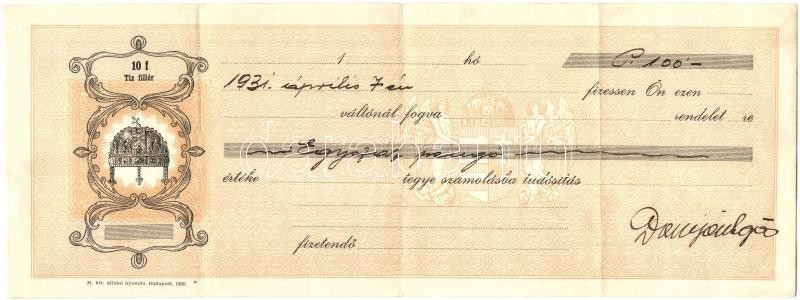 10 f
Tiz fillér
1 hó P. 100-
1931. április 7 én fizessen Ön ezen
váltónál fogva rendelet re
Egyszáz pengő
értéke tegye számolásba tudósítás
fizetendő
M. kir. állami nyomda. Budapest,